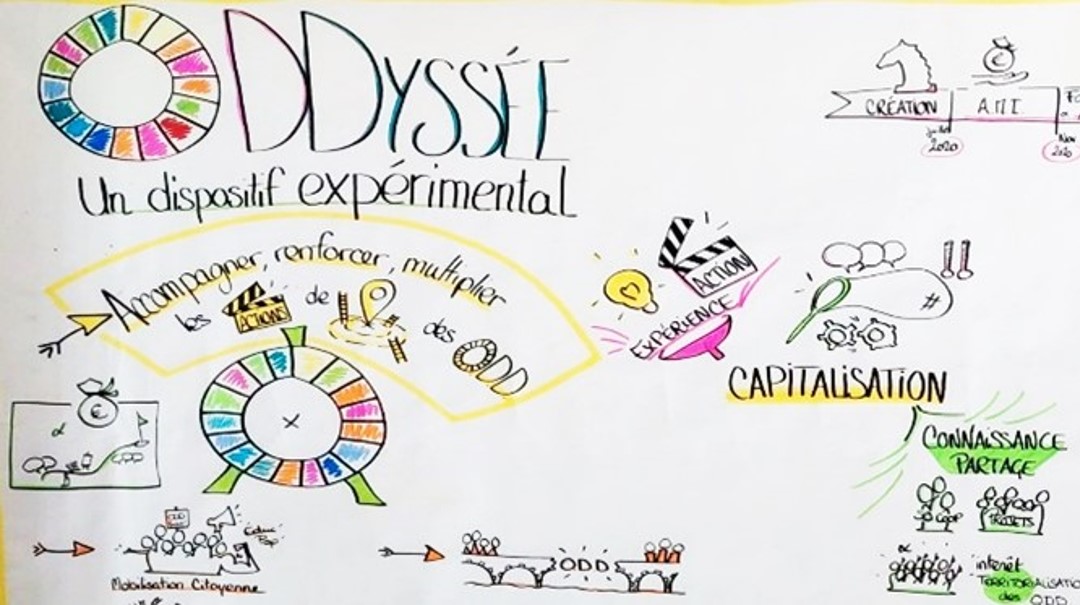 ODDYSSÉE
Un dispositif expérimental
CRÉATION
A.M.I.
juillet
2020
Nov
2020
Accompagner, renforcer, multiplier
les ACTIONS de
des ODD
ACTION
EXPÉRIENCE
#
CAPITALISATION
€
x
CONNAISSANCE
PARTAGE
COOP
PROJETS
&
intérêt
TERRITORIALISATIO
des ODD
Éduc
Pop
Mobilisation Citoyenne
ODD